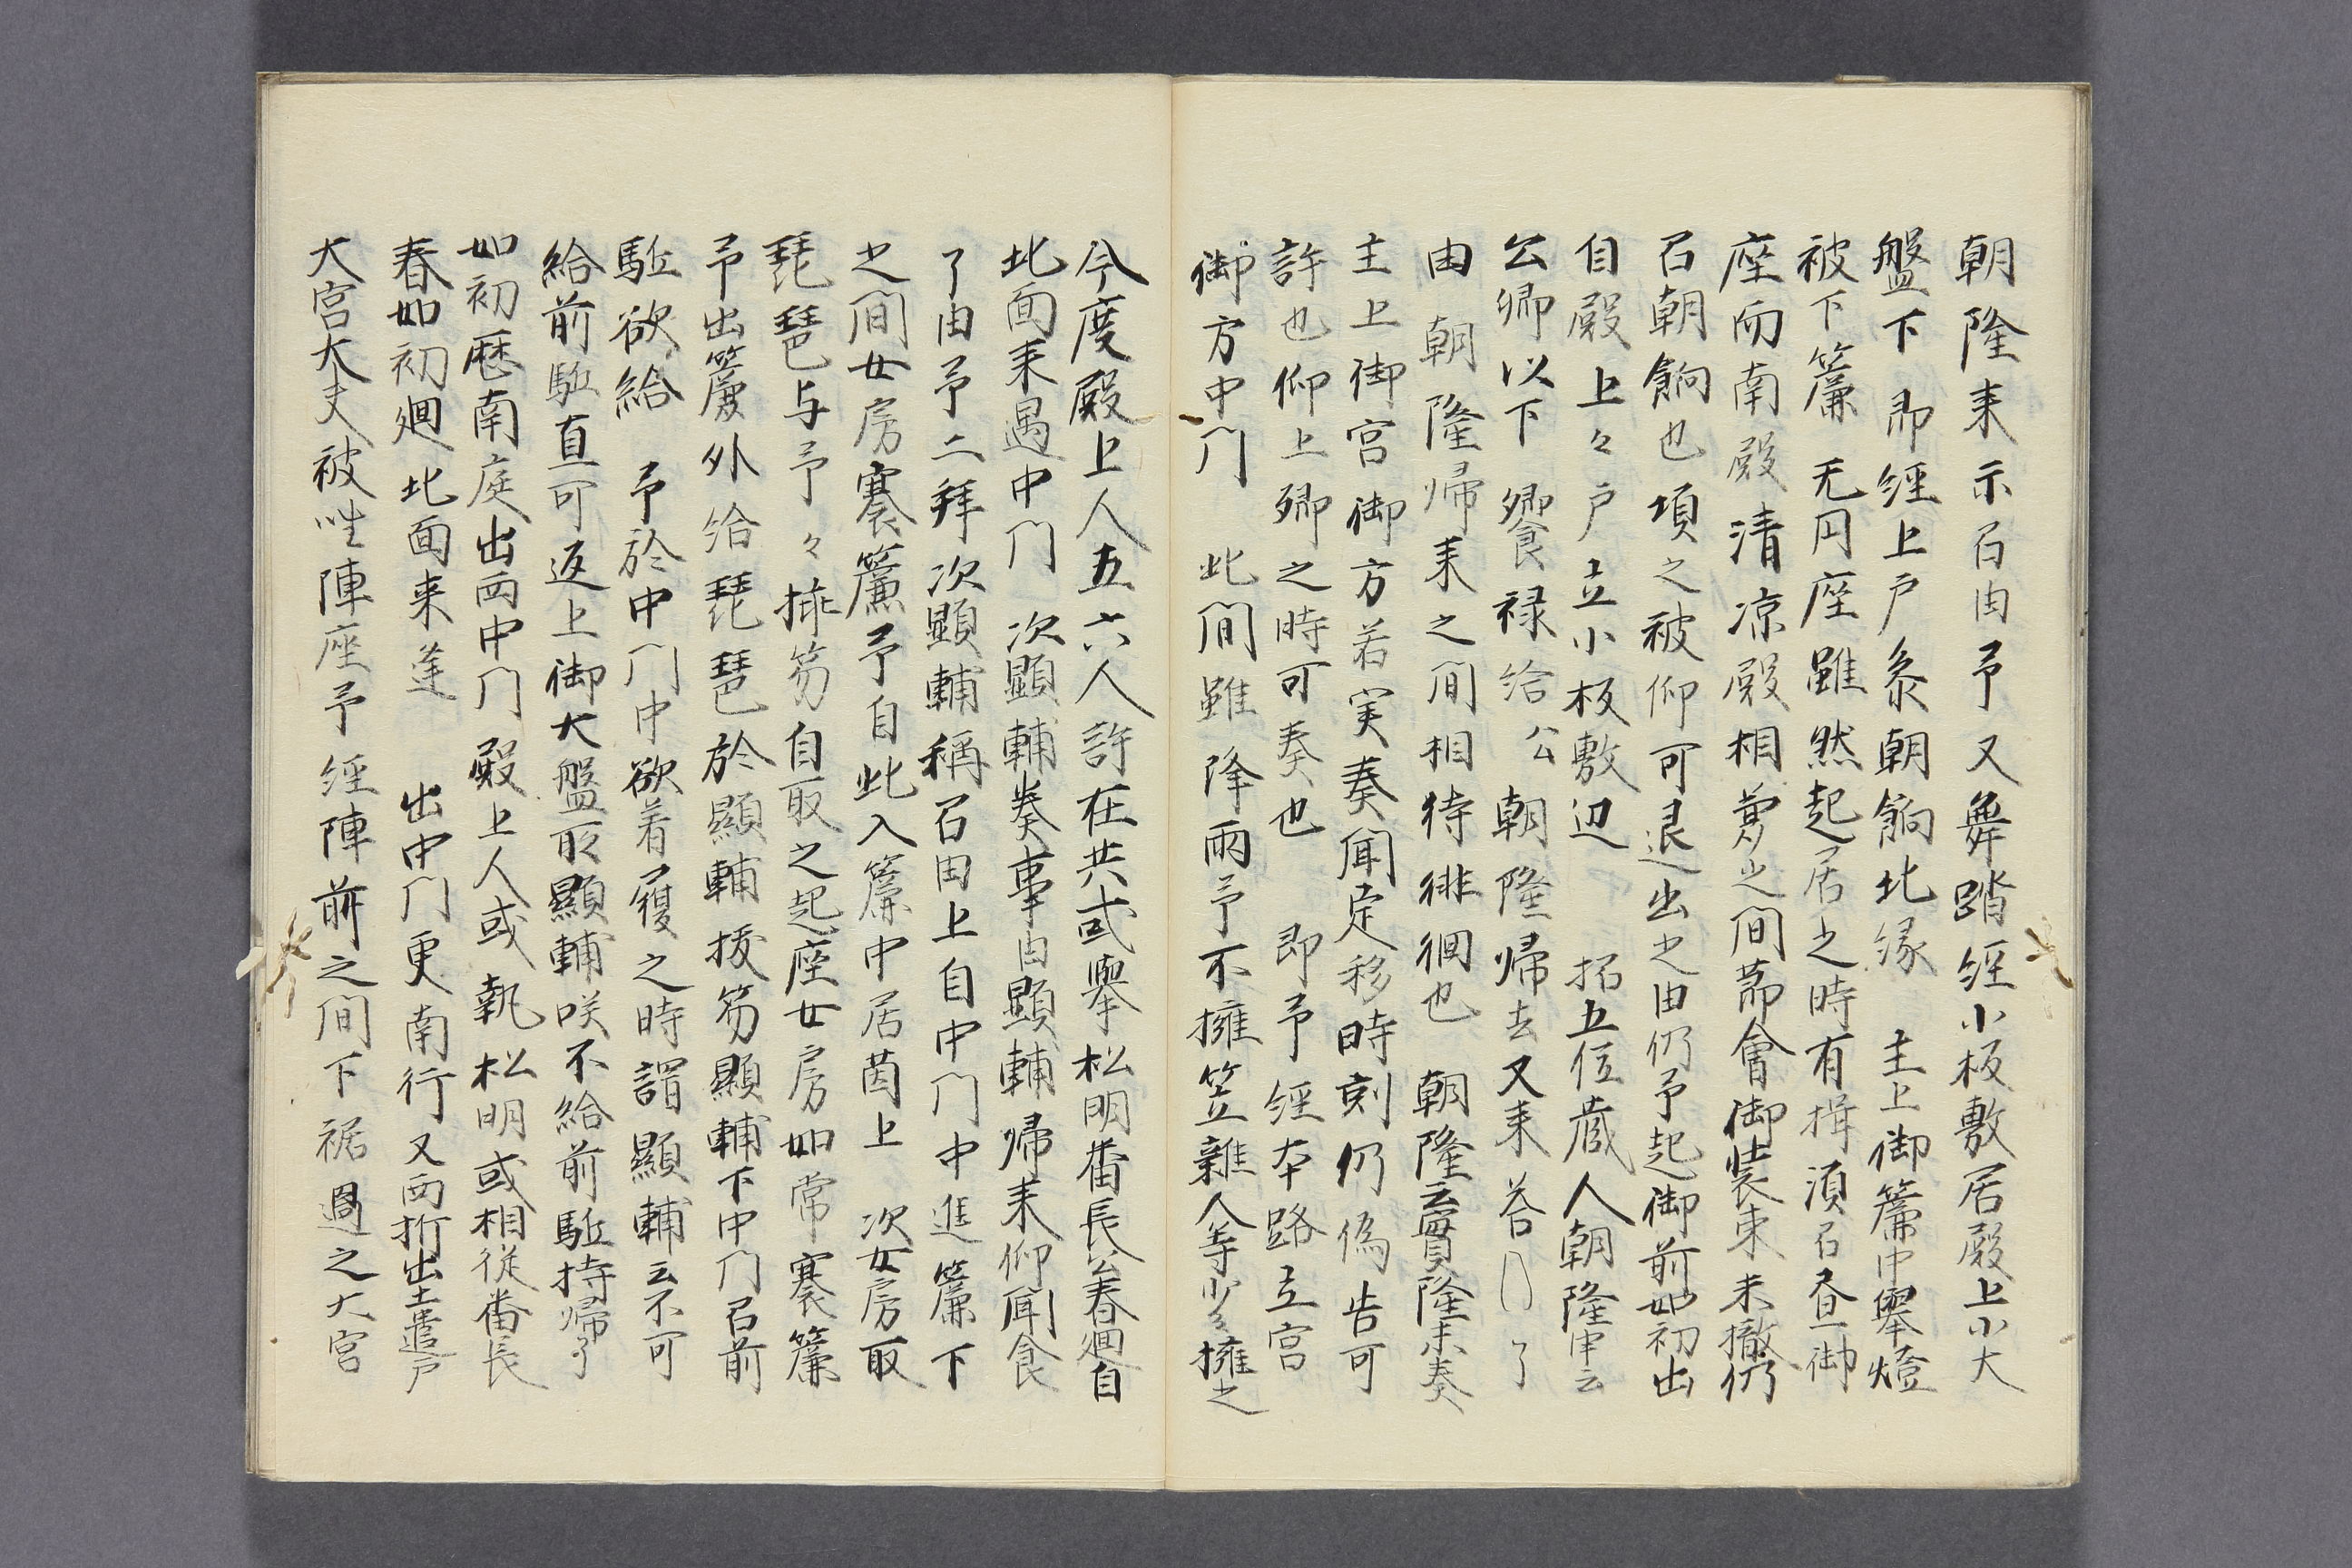 朝隆来示召由予又舞踏経小板敷居殿上小大
盤下　即経上戸参朝餉北縁　主上御簾中挙燈
被下簾　无円座雖然起居之時有揖須召昼御
座而南殿清凉殿相兼之間節會御装束未撤仍
召朝餉也頃之被仰可退出之由仍予起御前如初出
自殿上々戸立小板敷辺　招五位蔵人朝隆申云
公卿以下饗禄給公　朝隆帰去又来　答　了
由　朝隆帰来之間相待徘徊也　朝隆云實隆未奏
主上御宮御方若実奏聞定移時刻仍偽告可
許也仰上卿之時可奏也　即予経本路立宮
御方中门　此间雖降雨予不擁笠雑人等少々擁之
今度殿上人五六人許在共或挙松明番長公春廻自
北面来遇中门　次顕輔奏事由顕輔帰来仰聞食
了由予二拜次顕輔稱召由上自中门中進簾下
之间女房褰簾予自此入簾中居茵上　次女房取
琵琶与予々挿笏自取之起座女房如常褰簾
予出簾外給琵琶於顕輔抜笏顕輔下中门召前
駈欲給　予於中门中欲着履之時謂顕輔云不可
給前駈直可返上御大盤所顕輔咲不給前駈持帰了
如初歴南庭出西中门　殿上人或執松明或相従番長
春如初廻北面来逢　出中门更南行又西折出土遣戸
大宮大夫被坐陣座予経陣前之间下裾過之大宮